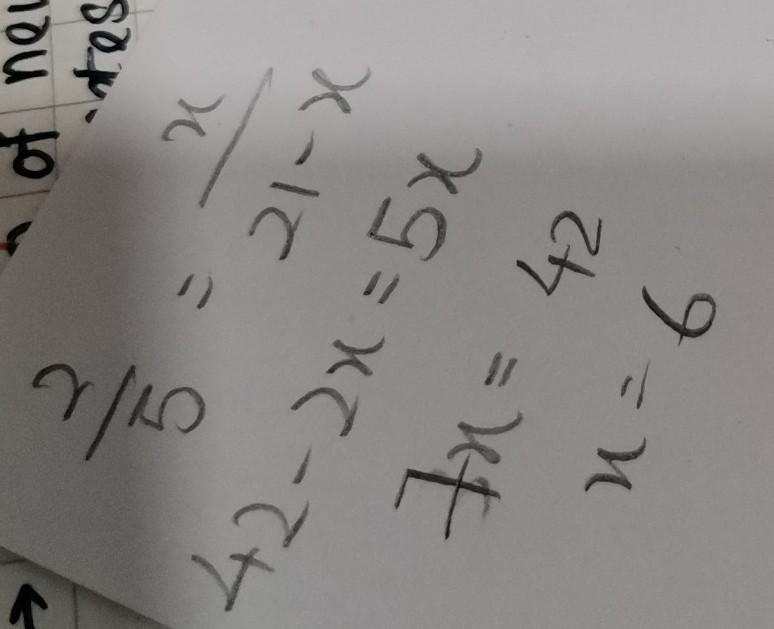 of new
notes
2/5 = x/21-x
42-2x=5x
7x = 42
x = 6
→